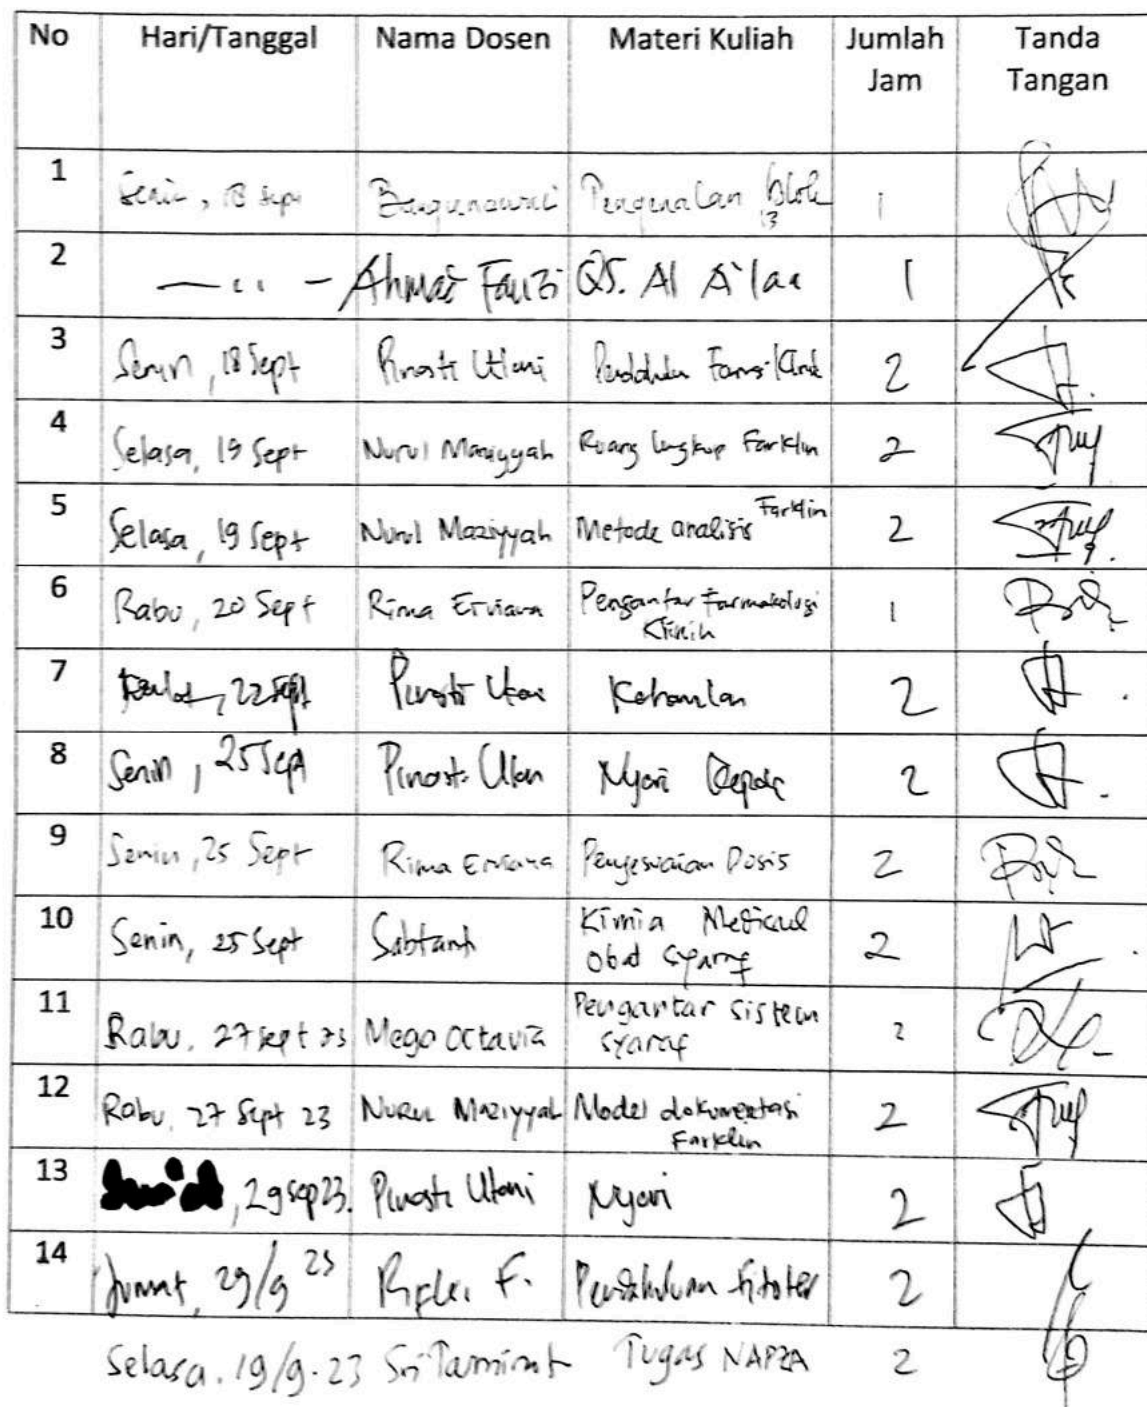 No Hari/Tanggal Nama Dosen Materi Kuliah Jumlah Jam Tanda Tangan
1 Senin, 18 Sept Pengenalan Blok 13 1
2 — ıı — Ahmad Fauzi QS. Al A'laa 1
3 Senin, 18 Sept Pinasti Utami 2
4 Selasa, 19 Sept Nurul Maziyyah Ruang lingkup Farklin 2
5 Selasa, 19 Sept Nurul Maziyyah Metode analisis Farklin 2
6 Rabu, 20 Sept Rima Erviana Pengantar Farmakologi Klinik 1
7 22 Sept Pinasti Utami Kehamilan 2
8 Senin, 25 Sept Pinasti Utami Nyeri Kepala 2
9 Senin, 25 Sept Rima Erviana Penyesuaian Dosis 2
10 Senin, 25 Sept Sabtanti Kimia Medicinal obat syaraf 2
11 Rabu, 27 sept 23 Mega Octavia Pengantar sistem syaraf 2
12 Rabu, 27 Sept 23 Nurul Maziyyah Model dokumentasi Farklin 2
13 , 29 Sep 23. Pinasti Utami Nyeri 2
14 Jumat, 29/9 23 F. Pendahuluan fitoter 2
Selasa. 19/9-23 Sri Tasminat Tugas NAPZA 2